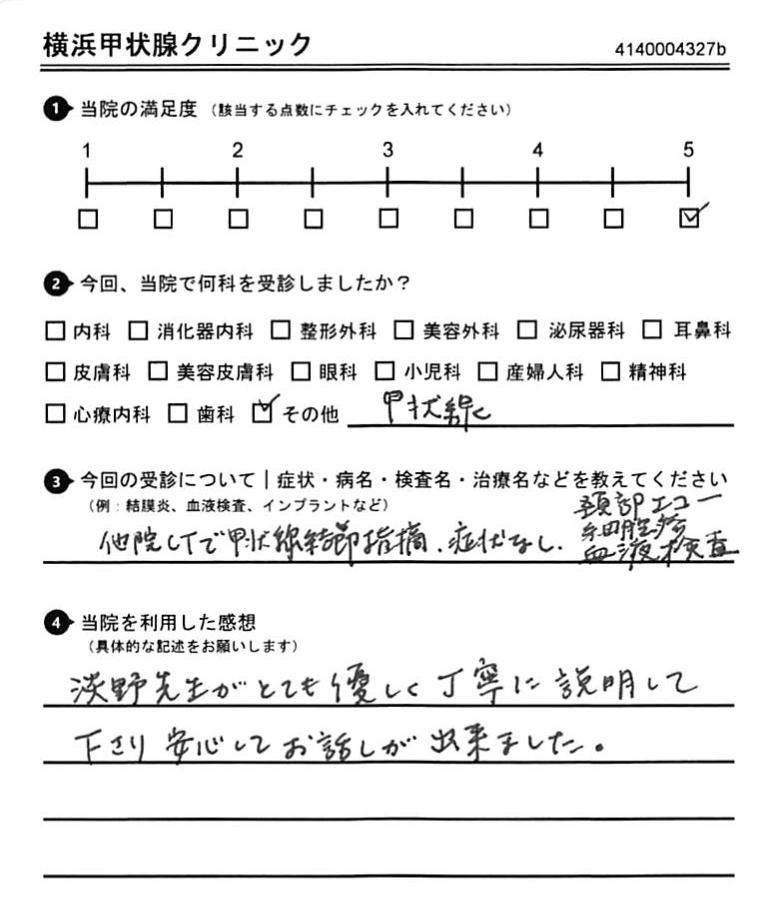 横浜甲状腺クリニック 4140004327b
1 当院の満足度 (該当する点数にチェックを入れてください)
1 2 3 4 5
2 今回、当院で何科を受診しましたか?
内科 消化器内科 整形外科 美容外科 泌尿器科 耳鼻科
皮膚科 美容皮膚科 眼科 小児科 産婦人科 精神科
心療内科 歯科 その他 甲状線
3 今回の受診について | 症状・病名・検査名・治療名などを教えてください
(例:結膜炎、血液検査、インプラントなど)
頚部エコー
細胞診
他院CTで甲状線結節指摘、症状なし、血液検査
4 当院を利用した感想
(具体的な記述をお願いします)
淡野先生がとても優しく丁寧に説明して
下さり安心してお話しが出来ました。